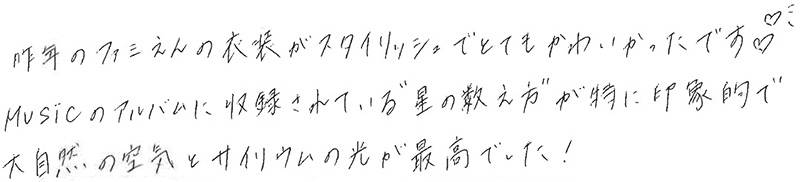 昨年のファミえんの衣装がスタイリッシュでとてもかわいかったです♡♡
MUSiCのアルバムに収録されている"星の数え方"が特に印象的で
大自然の空気とサイリウムの光が最高でした!